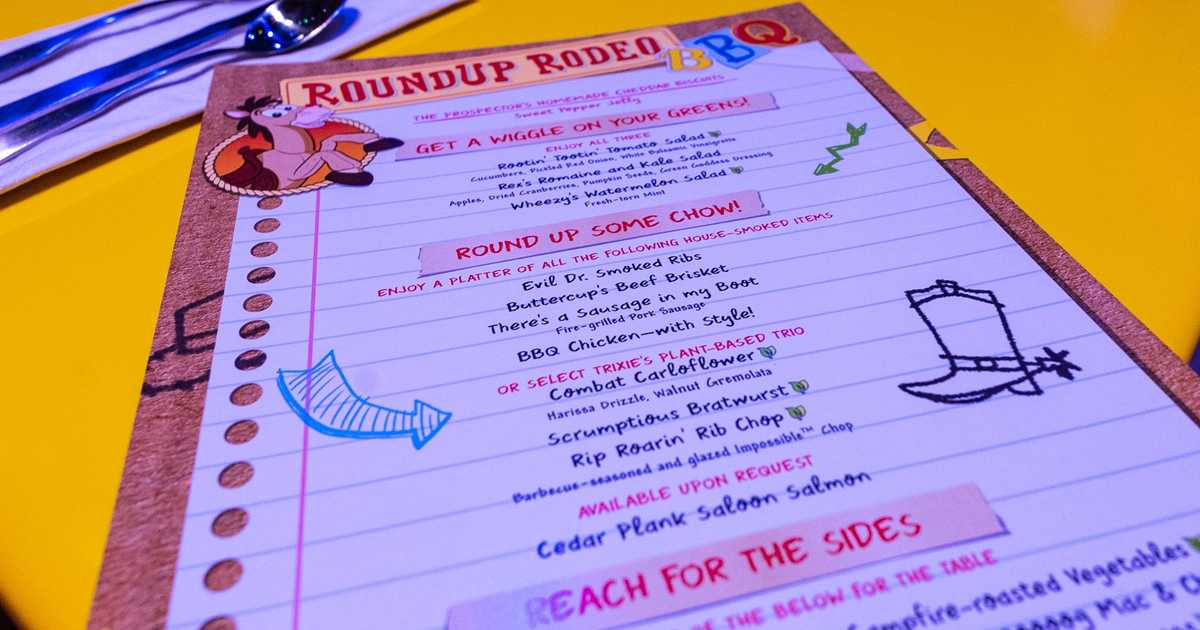 ROUNDUP RODEO BBQ
THE PROSPECTOR'S HOMEMADE CHEDDAR BISCUITS
Sweet Pepper Jelly
GET A WIGGLE ON YOUR GREENS!
ENJOY ALL THREE
Rootin' Tootin' Tomato Salad
Cucumbers, Pickled Red Onion, White Balsamic Vinaigrette
Rex's Romaine and Kale Salad
Apples, Dried Cranberries, Pumpkin Seeds, Green Goddess Dressing
Wheezy's Watermelon Salad
Fresh-torn Mint
ROUND UP SOME CHOW!
ENJOY A PLATTER OF ALL THE FOLLOWING HOUSE-SMOKED ITEMS
Evil Dr. Smoked Ribs
Buttercup's Beef Brisket
There's a Sausage in my Boot
Fire-grilled Pork Sausage
BBQ Chicken—with Style!
OR SELECT TRIXIE'S PLANT-BASED TRIO
Combat Carloflower
Harissa Drizzle, Walnut Gremolata
Scrumptious Bratwurst
Rip Roarin' Rib Chop
Barbecue-seasoned and glazed Impossible™ Chop
AVAILABLE UPON REQUEST
Cedar Plank Saloon Salmon
REACH FOR THE SIDES
OF THE BELOW FOR THE TABLE
Campfire-roasted Vegetables
Mac &